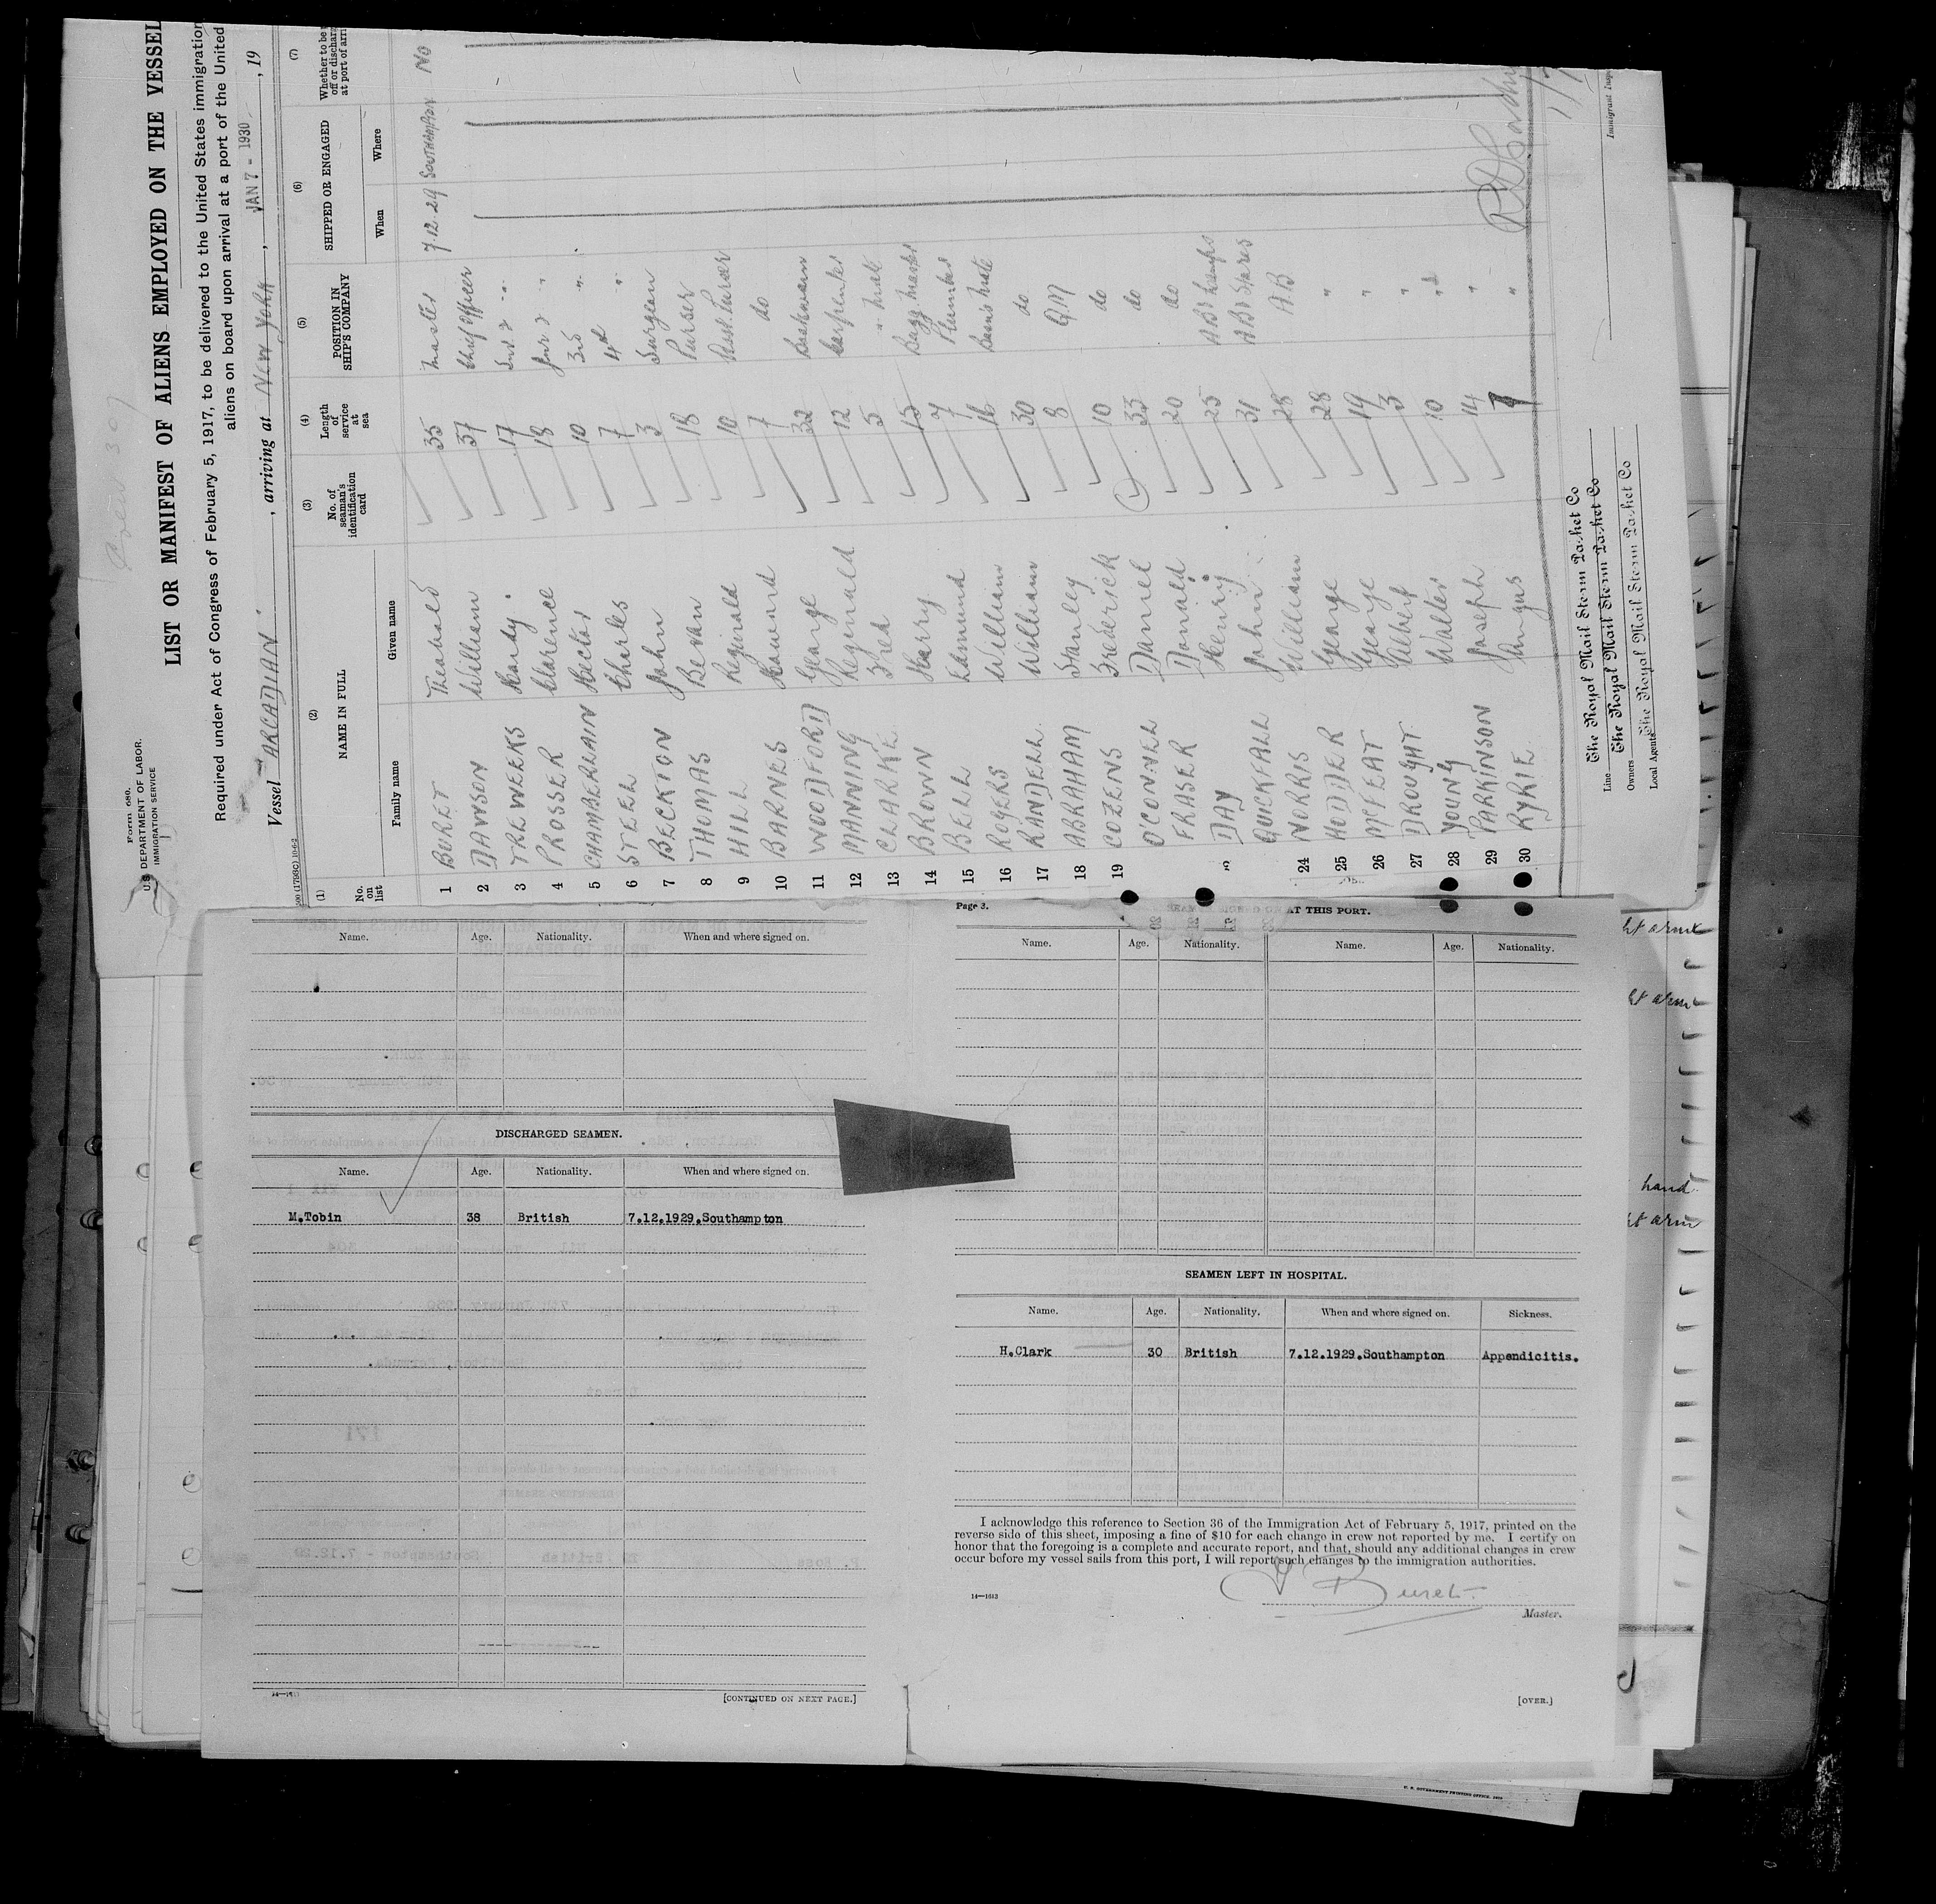 Form 680.
U.S. DEPARTMENT OF LABOR.
IMMIGRATION SERVICE
LIST OR MANIFEST OF ALIENS EMPLOYED ON THE VESSEL
Required under Act of Congress of February 5, 1917, to be delivered to the United States immigration
aliens on board upon arrival at a port of the United
Vessel "ARCADIAN", arriving at New York, JAN 7 - 1930, 19
(1) (2) (3) (4) (5) (6) (7)
No. on list NAME IN FULL No. of seaman's identification card Length of service at sea POSITION IN SHIP'S COMPANY SHIPPED OR ENGAGED Whether to be
off or discharg
at port of arri
Family name Given name When Where
1 BURET Theobald 35 Master 7.12.29 SOUTHAMPTON NO
2 DAWSON William 37 Chief Officer
3 TREWEEKS Hardy 17
4 PROSSER Clarence 18
5 CHAMBERLAIN Hector 10 3rd "
6 STEEL Charles 7 4th "
7 BECKTON John 3 Surgeon
8 THOMAS Bevan 18 Purser
9 HILL Reginald 10 Asst. Purser
10 BARNES Howard 7 do
11 WOODFORD George 32
12 MANNING Reginald 12 Carpenter
13 CLARKE Fred 5 " Mate
14 BROWN Harry 15 Bagg. Master
15 BELL Edmund 7 Plumber
16 ROGERS William 16 Bosn's Mate
17 RANDELL William 30 do
18 ABRAHAM Stanley 8 QM
19 COZENS Frederick 10 do
O'CONNEL Daniel 33 do
FRASER Donald 20 do
DAY Henry 25 AB & Lamps
QUICKFALL John 31 AB & Stores
24 NORRIS William 28 A.B
25 HODDER George 28 "
26 McFEAT George 19 "
27 DROUGHT Albert 3 "
28 YOUNG Walter 10 "
29 PARKINSON Joseph 14 "
30 RYRIE Angus "
Line The Royal Mail Steam Packet Co
Owners The Royal Mail Steam Packet Co
Local Agents The Royal Mail Steam Packet Co
Immigrant Inspe
Name. Age. Nationality. When and where signed on.
DISCHARGED SEAMEN.
Name. Age. Nationality. When and where signed on.
M.Tobin 38 British 7.12.1929.Southampton
[CONTINUED ON NEXT PAGE.]
Page 3.
AT THIS PORT.
Name. Age. Nationality. Name. Age. Nationality.
SEAMEN LEFT IN HOSPITAL.
Name. Age. Nationality. When and where signed on. Sickness.
H.Clark 30 British 7.12.1929.Southampton Appendicitis.
I acknowledge this reference to Section 36 of the Immigration Act of February 5, 1917, printed on the
reverse side of this sheet, imposing a fine of $10 for each change in crew not reported by me. I certify on
honor that the foregoing is a complete and accurate report, and that, should any additional changes in crew
occur before my vessel sails from this port, I will report such changes to the immigration authorities.
Buret
14—1613
Master.
[OVER.]
ht arm
ht arm
hand
ht arm